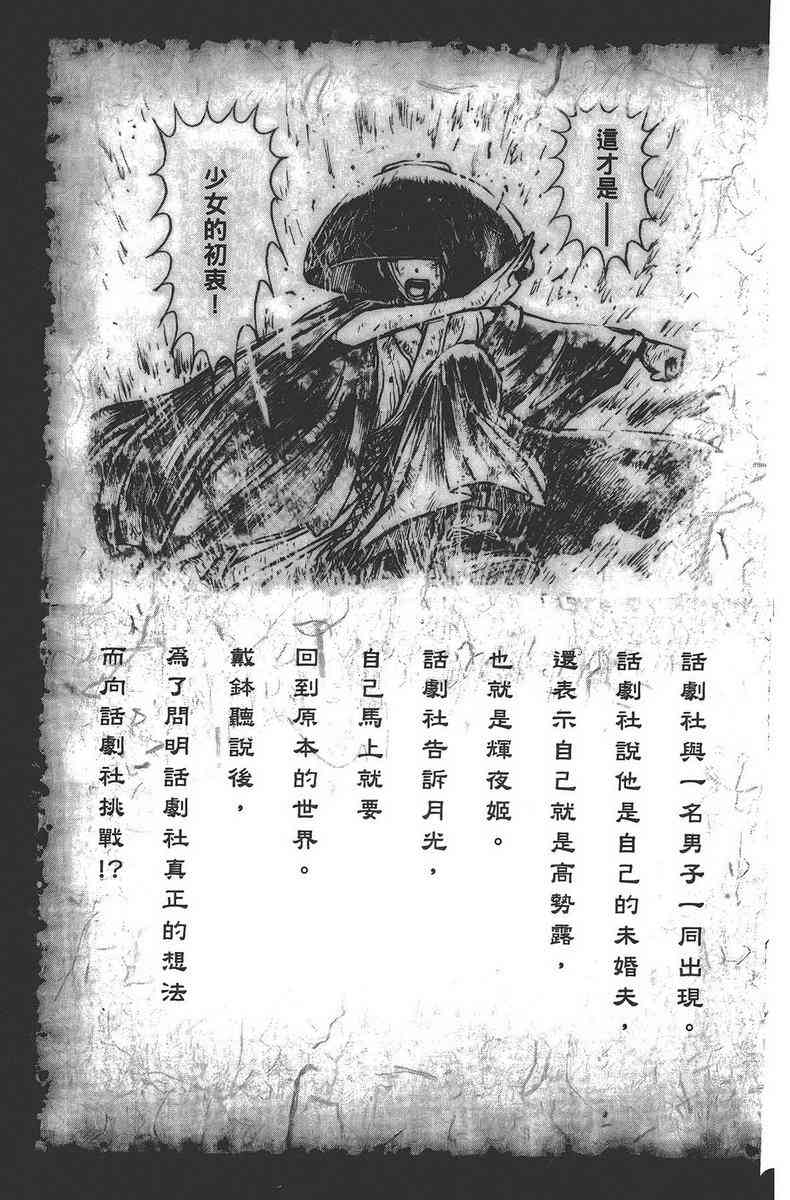 這才是——
少女的初衷！
話劇社與一名男子一同出現。
話劇社說他是自己的未婚夫，
還表示自己就是高勢露，
也就是輝夜姬。
話劇社告訴月光，
自己馬上就要
回到原本的世界。
戴鉢聽說後，
為了問明話劇社真正的想法
而向話劇社挑戰!?